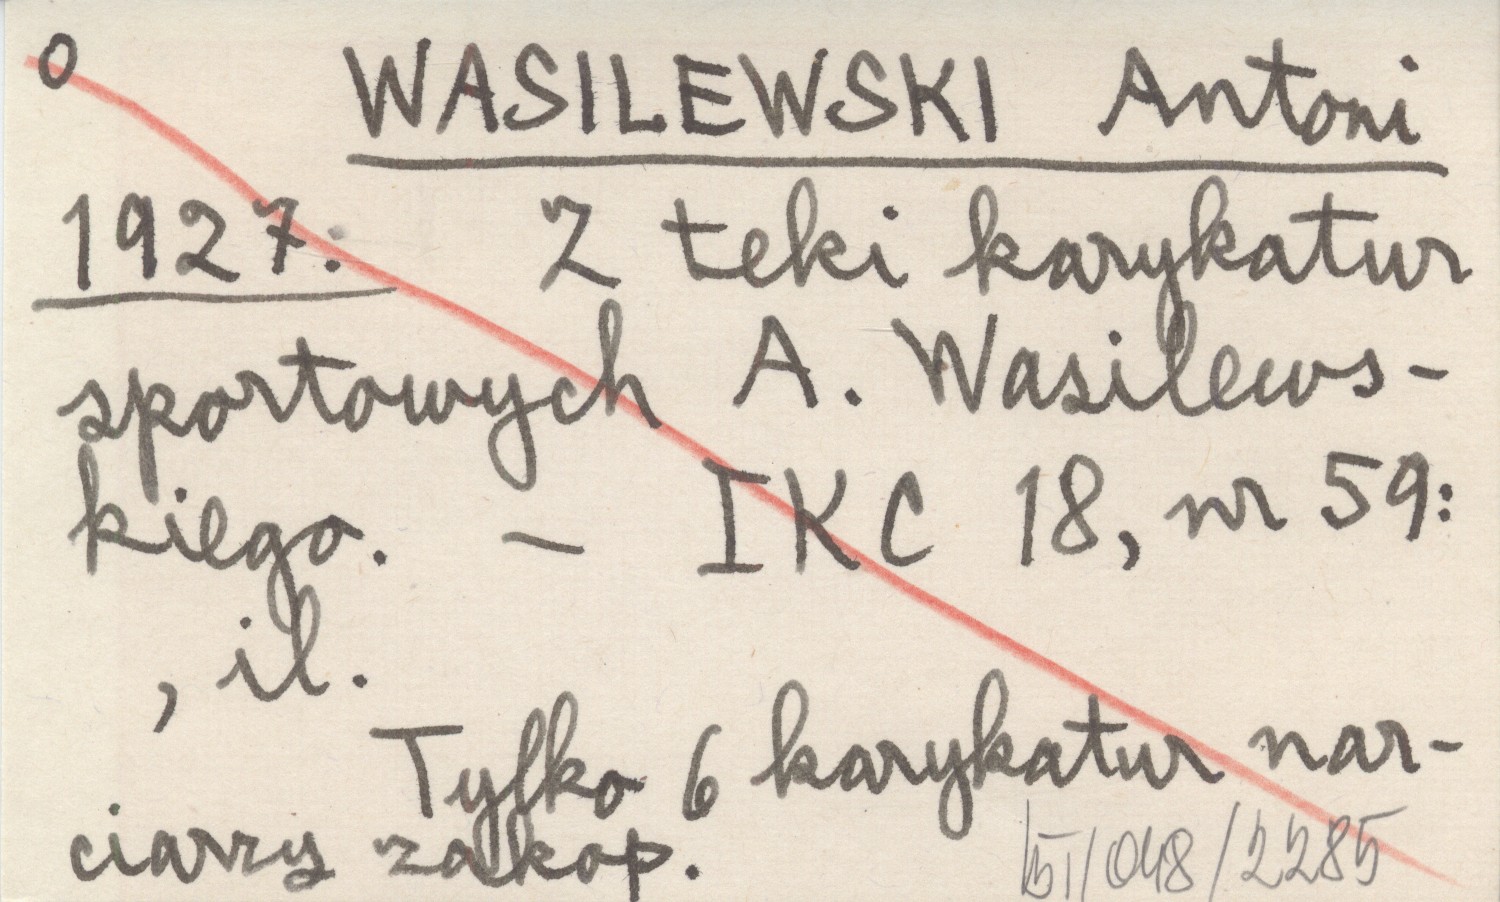 o WASILEWSKI Antoni
1927: Z teki karykatur
sportowych A. Wasilews-
kiego. – IKC 18, nr 59:
, il.
Tylko 6 karykatur nar-
ciarzy zakop.
/048/2285